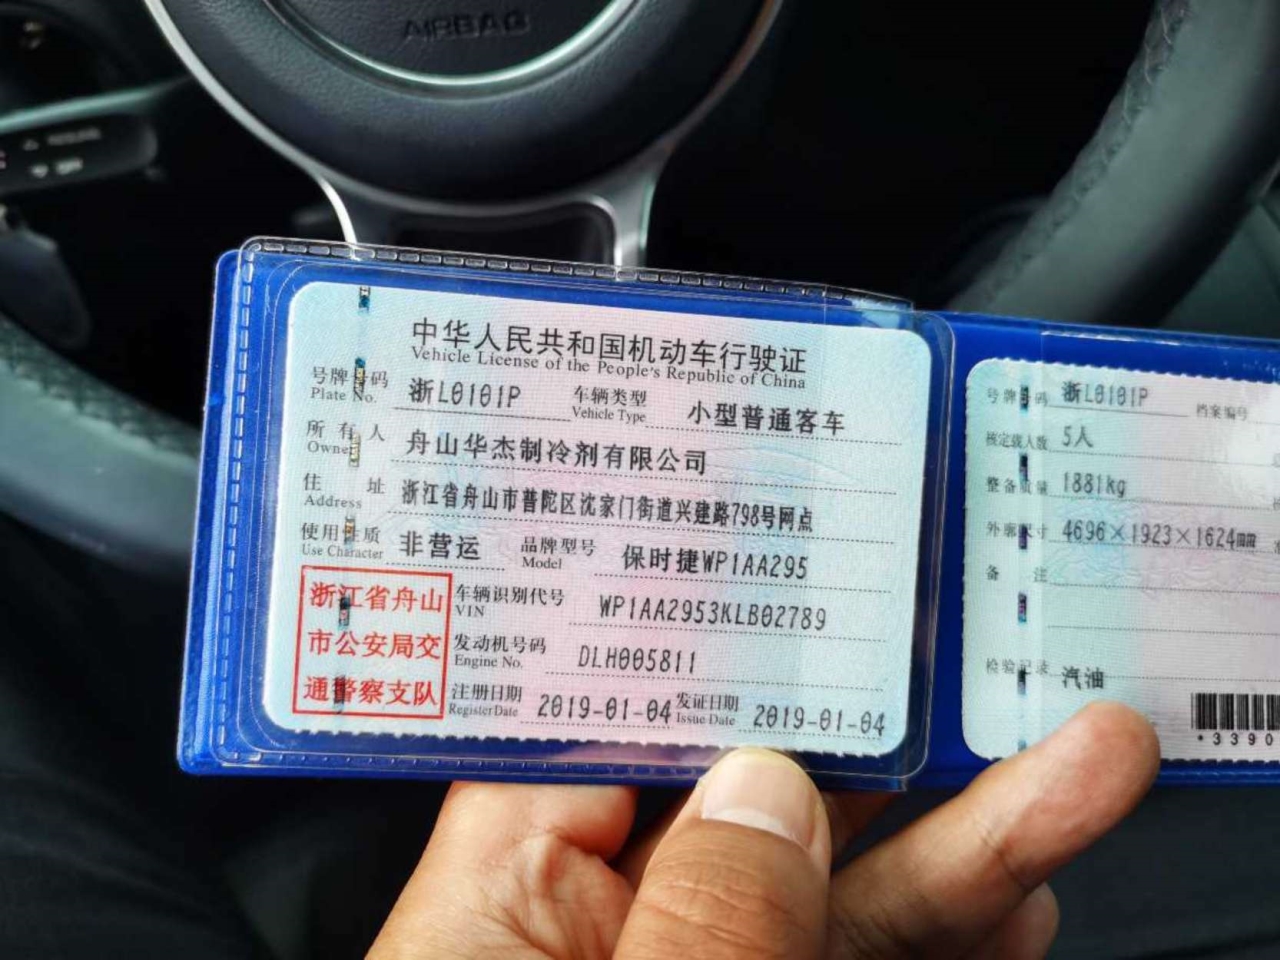 AIRBAG
中华人民共和国机动车行驶证
Vehicle License of the People's Republic of China
号牌号码 浙L0101P 车辆类型 小型普通客车
Plate No. Vehicle Type
所有人 舟山华杰制冷剂有限公司
Owner
住址 浙江省舟山市普陀区沈家门街道兴建路798号网点
Address
使用性质 非营运 品牌型号 保时捷WP1AA295
Use Character Model
浙江省舟山
市公安局交
通警察支队
车辆识别代号 WP1AA2953KLB02789
VIN
发动机号码 DLH005811
Engine No.
注册日期 2019-01-04 发证日期 2019-01-04
Register Date Issue Date
号牌号码 浙L0101P 档案编号
核定载人数 5人
整备质量 1881kg
外廓尺寸 4696×1923×1624mm
备注
检验记录 汽油
*3390